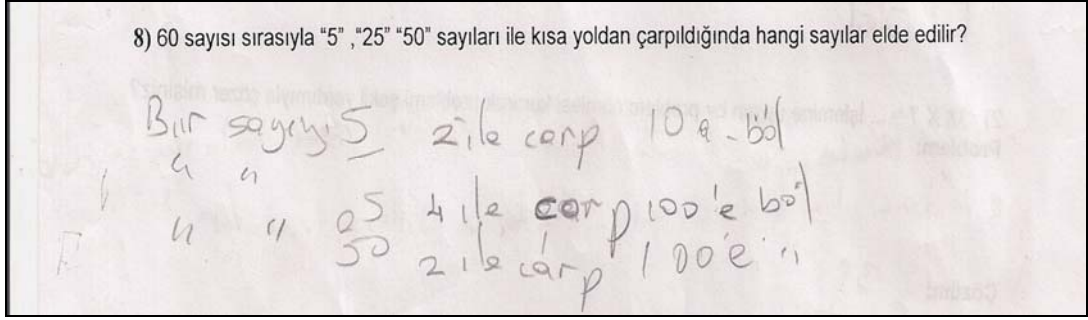 8) 60 sayısı sırasıyla “5” ,“25” “50” sayıları ile kısa yoldan çarpıldığında hangi sayılar elde edilir?
Bir sayıyı 5 2 ile carp 10 a böl
" "
" " 25 4 ile carp 100'e böl
50 2 ile carp 100'e "